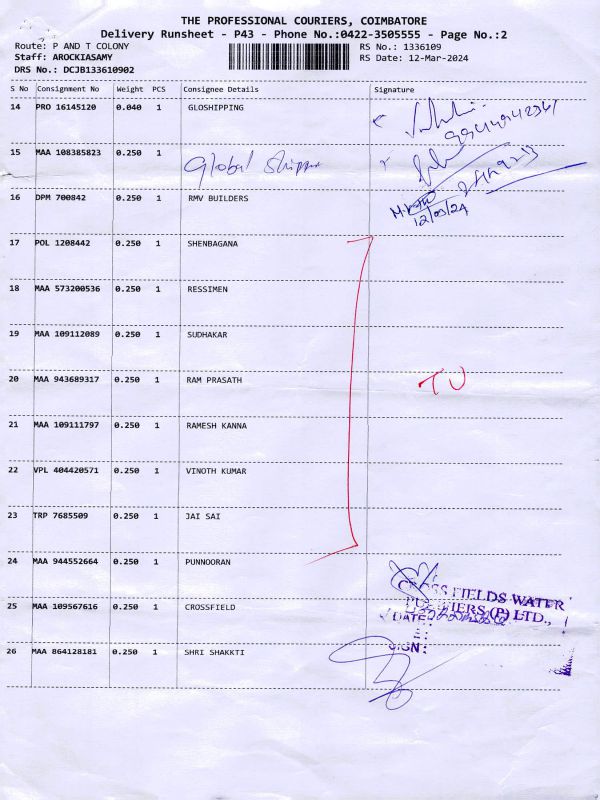 THE PROFESSIONAL COURIERS, COIMBATORE
Delivery Runsheet - P43 - Phone No.:0422-3505555 - Page No.:2
Route: P AND T COLONY
Staff: AROCKIASAMY
DRS No.: DCJB133610902
RS No.: 1336109
RS Date: 12-Mar-2024
S No Consignment No Weight PCS Consignee Details Signature
14 PRO 16145120 0.040 1 GLOSHIPPING
15 MAA 108385823 0.250 1 Global
16 DPM 700842 0.250 1 RMV BUILDERS
12/03/24
17 POL 1208442 0.250 1 SHENBAGANA
18 MAA 573200536 0.250 1 RESSIMEN
19 MAA 109112089 0.250 1 SUDHAKAR
20 MAA 943689317 0.250 1 RAM PRASATH
21 MAA 109111797 0.250 1 RAMESH KANNA
22 VPL 404420571 0.250 1 VINOTH KUMAR
23 TRP 7685509 0.250 1 JAI SAI
24 MAA 944552664 0.250 1 PUNNOORAN
CROSS FIELDS WATER
PURIFIERS (P) LTD.,
25 MAA 109567616 0.250 1 CROSSFIELD
DATE:
SIGN:
26 MAA 864128181 0.250 1 SHRI SHAKKTI